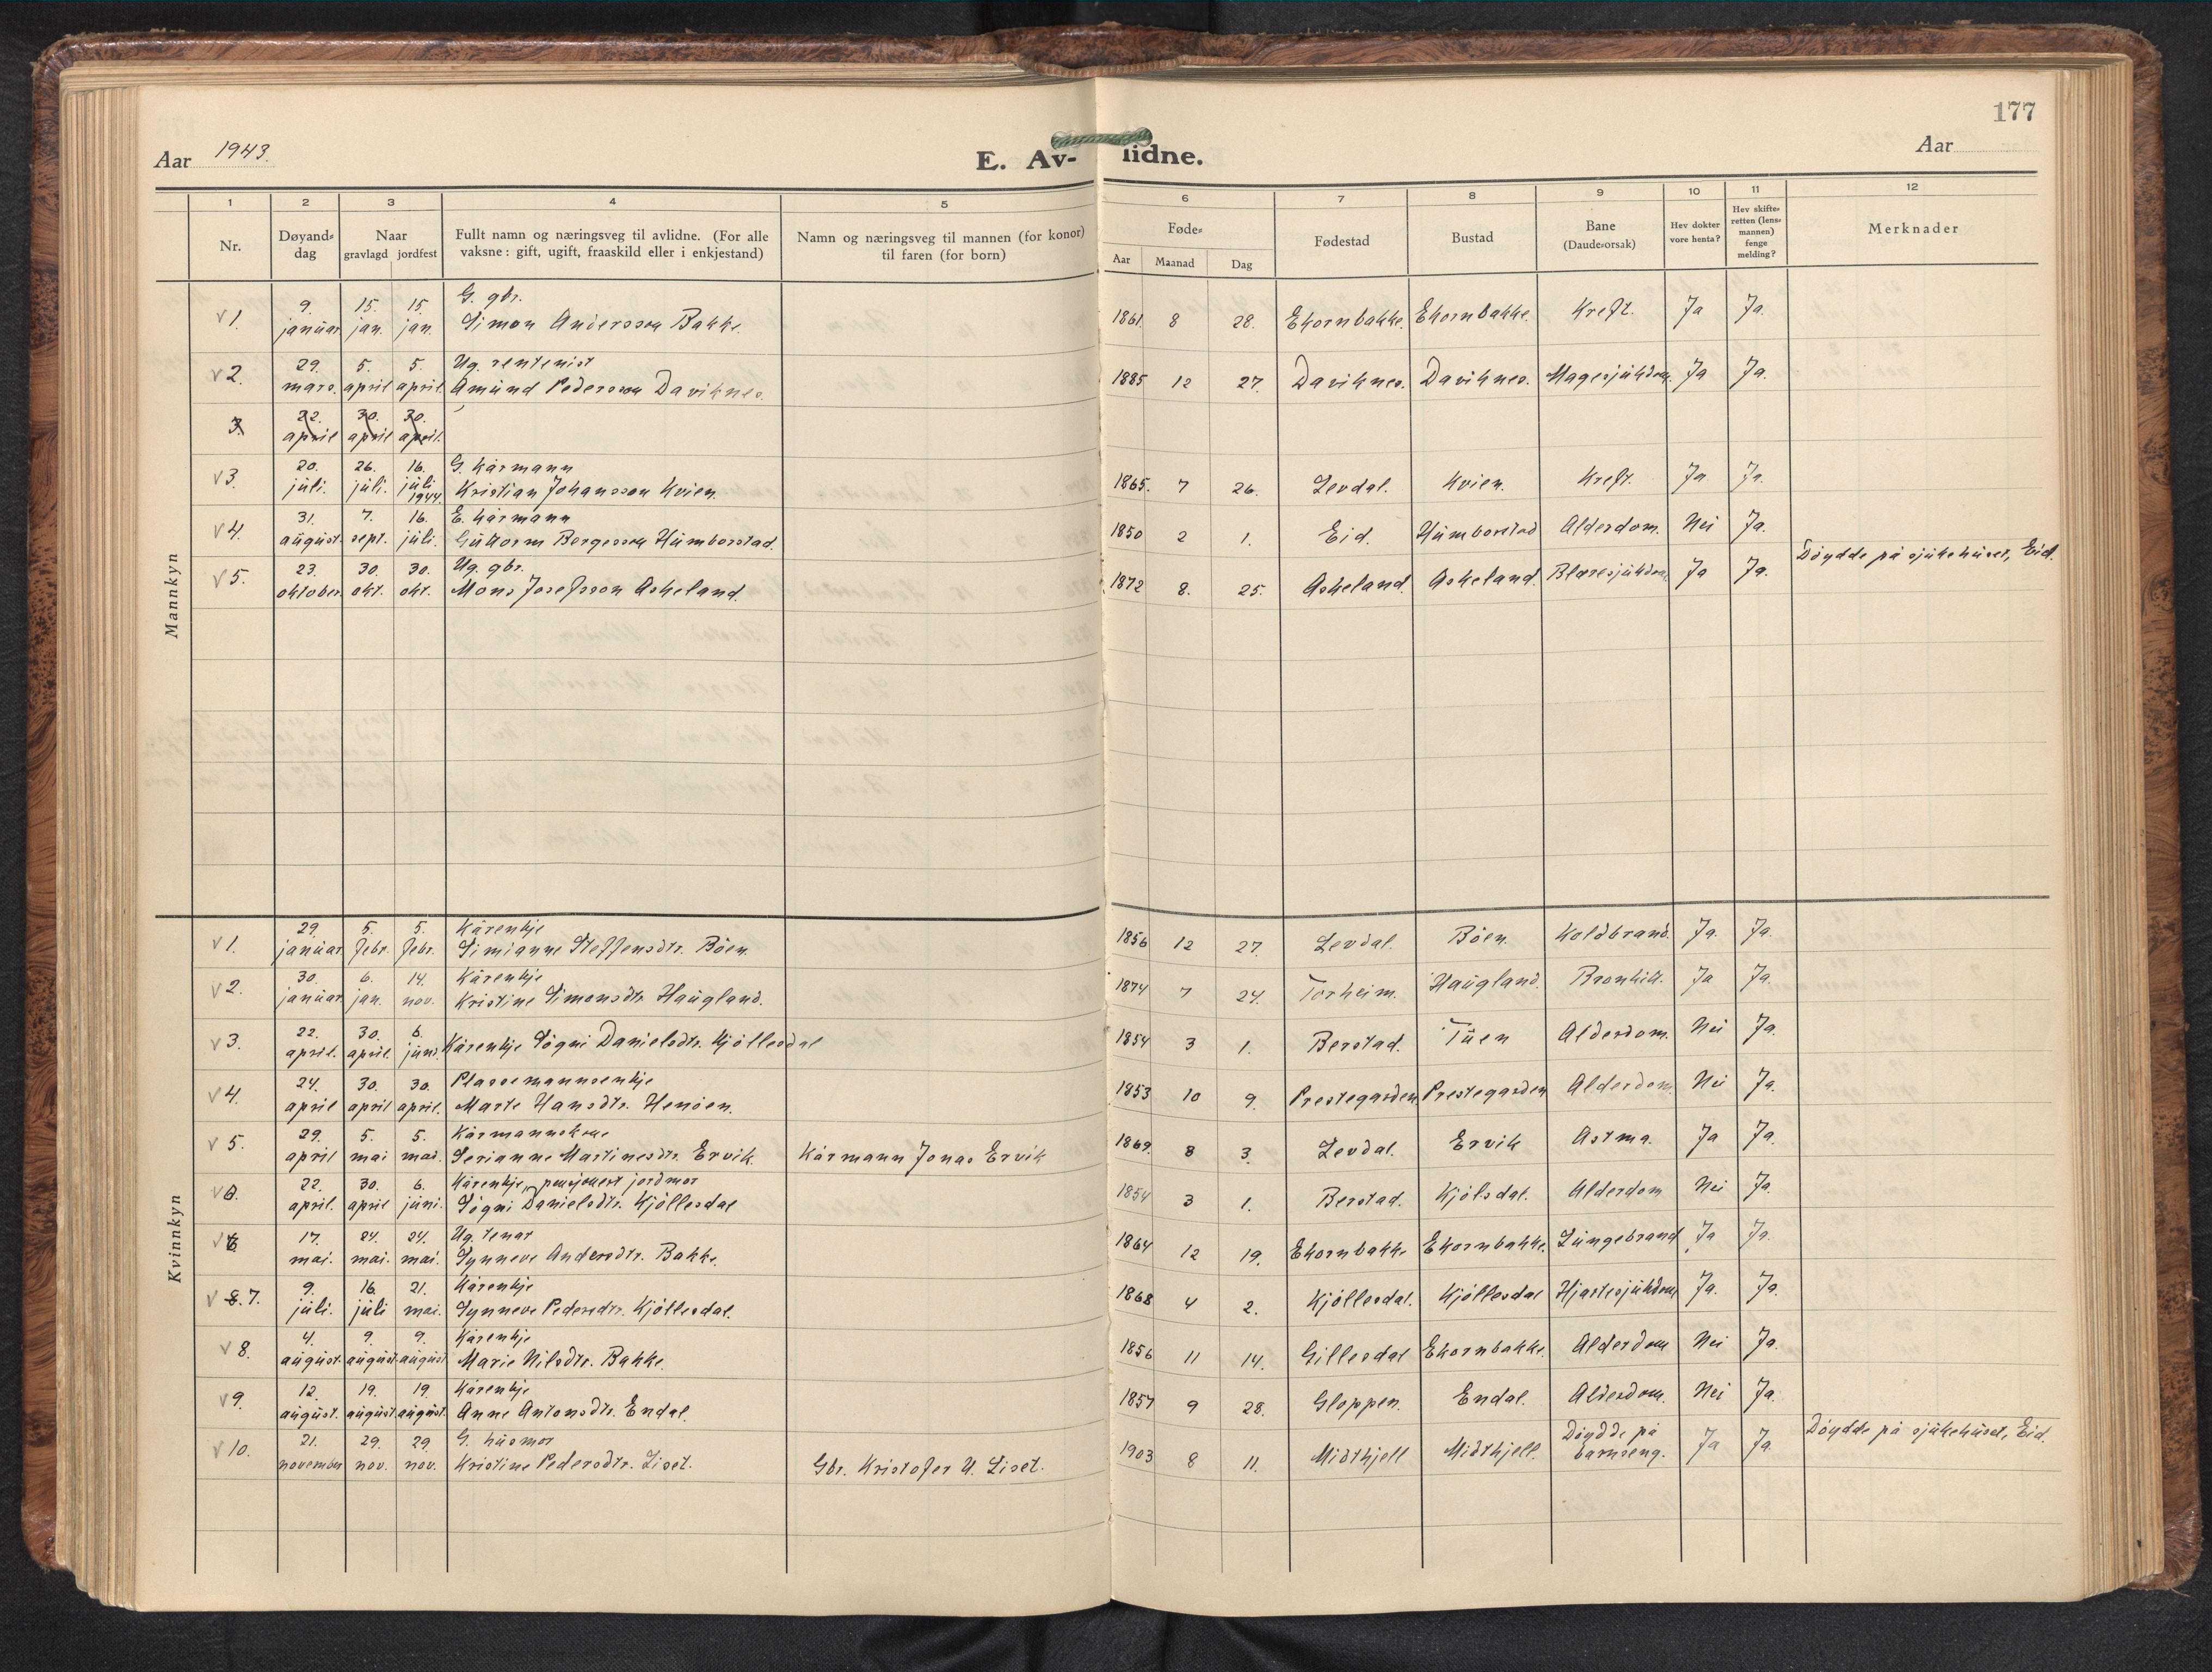 177
Aar 1943. E. Av- lidne. Aar
1 2 3 4 5 6 7 8 9 10 11 12
Nr. Døyand-dag Naar gravlagd jordfest Fullt namn og næringsveg til avlidne. (For alle vaksne: gift, ugift, fraaskild eller i enkjestand) Namn og næringsveg til mannen (for konor) til faren (for born) Føde- Aar Maanad Dag Fødestad Bustad Bane (Daudsorsak) Hev dokter vore henta? Hev skifte-retten (lens-mannen) fenge melding? Merknader
Mannkyn
v 1. 9. januar 15. jan. 15. jan. G. gbr. Simon Andersson Bakke. 1861. 8 28. Ekornbakke. Ekornbakke. Kreft. Ja Ja.
v 2. 29. mars. 5. april 5. april. Ug. rentenist Amund Pedersson Daviknes. 1885 12 27. Daviknes. Daviknes. Magesjukdom. Ja Ja.
3. 22. april 30. april 30. april.
v 3. 20. juli. 26. juli. 16. juli 1944 G. kårmann Kristian Johansson Kvien. 1865. 7 26. Levdal. Kvien. Kreft. Ja Ja.
v 4. 31. august. 7. sept. 16. juli. E. kårmann Guttorm Børgesson Humborstad. 1850 2 1. Eid. Humborstad Alderdom. Nei Ja.
v 5. 23. oktober. 30. okt. 30. okt. Ug. gbr. Mons Josefsson Askeland. 1872 8. 25. Askeland. Askeland. Blæresjukdom. Ja Ja. Døydde på sjukehuset, Eid.
Kvinnkyn
v 1. 29. januar 5. febr. 5. febr. Kårenkje Simianne Steffensdtr. Bøen. 1856 12 27. Levdal. Bøen. Koldbrand. Ja. Ja.
v 2. 30. januar 6. jan. 14. nov. Kårenkje Kristine Simonsdtr. Haugland. 1874 7 24. Torheim. Haugland. Bronkitt. Ja Ja.
v 3. 22. april. 30. april. 6. juni. Kårenkje Søgni Danielsdtr. Kjøllesdal 1854 3 1. Berstad. Tuen Alderdom. Nei Ja.
v 4. 24. april 30. april 30. april. Plassemannsenkje Marte Hansdtr. Henøen. 1853 10 9. Prestegarden Prestegarden Alderdom. Nei Ja.
v 5. 29. april 5. mai 5. mai. Kårmannskone Serianne Martinesdtr. Ervik. Kårmann Jonas Ervik 1869. 8 3. Levdal. Ervik Astma. Ja Ja.
v 6. 22. april. 30. april 6. juni. Kårenkje, pensjonert jordmor Søgni Danielsdtr. Kjøllesdal 1854 3 1. Berstad. Kjølsdal. Alderdom Nei Ja.
v 6 17. mai. 24. mai. 24. mai. Ug. tenar Synneve Andersdtr. Bakke. 1864 12 19. Ekornbakke Ekornbakke. Lungebrand. Ja Ja.
v 8. 7. 9. juli. 16. juli 21. mai. Kårenkje Synneve Pedersdtr. Kjøllesdal. 1868 4 2. Kjøllesdal. Kjøllesdal Hjartesjukdom Ja. Ja.
v 8. 4. august. 9. august. 9. august Kårenkje Marie Nilsdtr. Bakke. 1856 11 14. Gillesdal Ekornbakke. Alderdom Nei Ja.
v 9. 12. august. 19. august. 19. august. Kårenkje Anne Antonsdtr. Endal. 1857 9 28. Gloppen. Endal. Alderdom. Nei Ja.
v 10. 21. november 29. nov. 29. nov. G. husmor Kristine Pedersdtr. Liset. Gbr. Kristofer U. Liset. 1903 8 11. Midthjell Midthjell. Døydde på barnseng. Ja Ja. Døydde på sjukehuset, Eid.